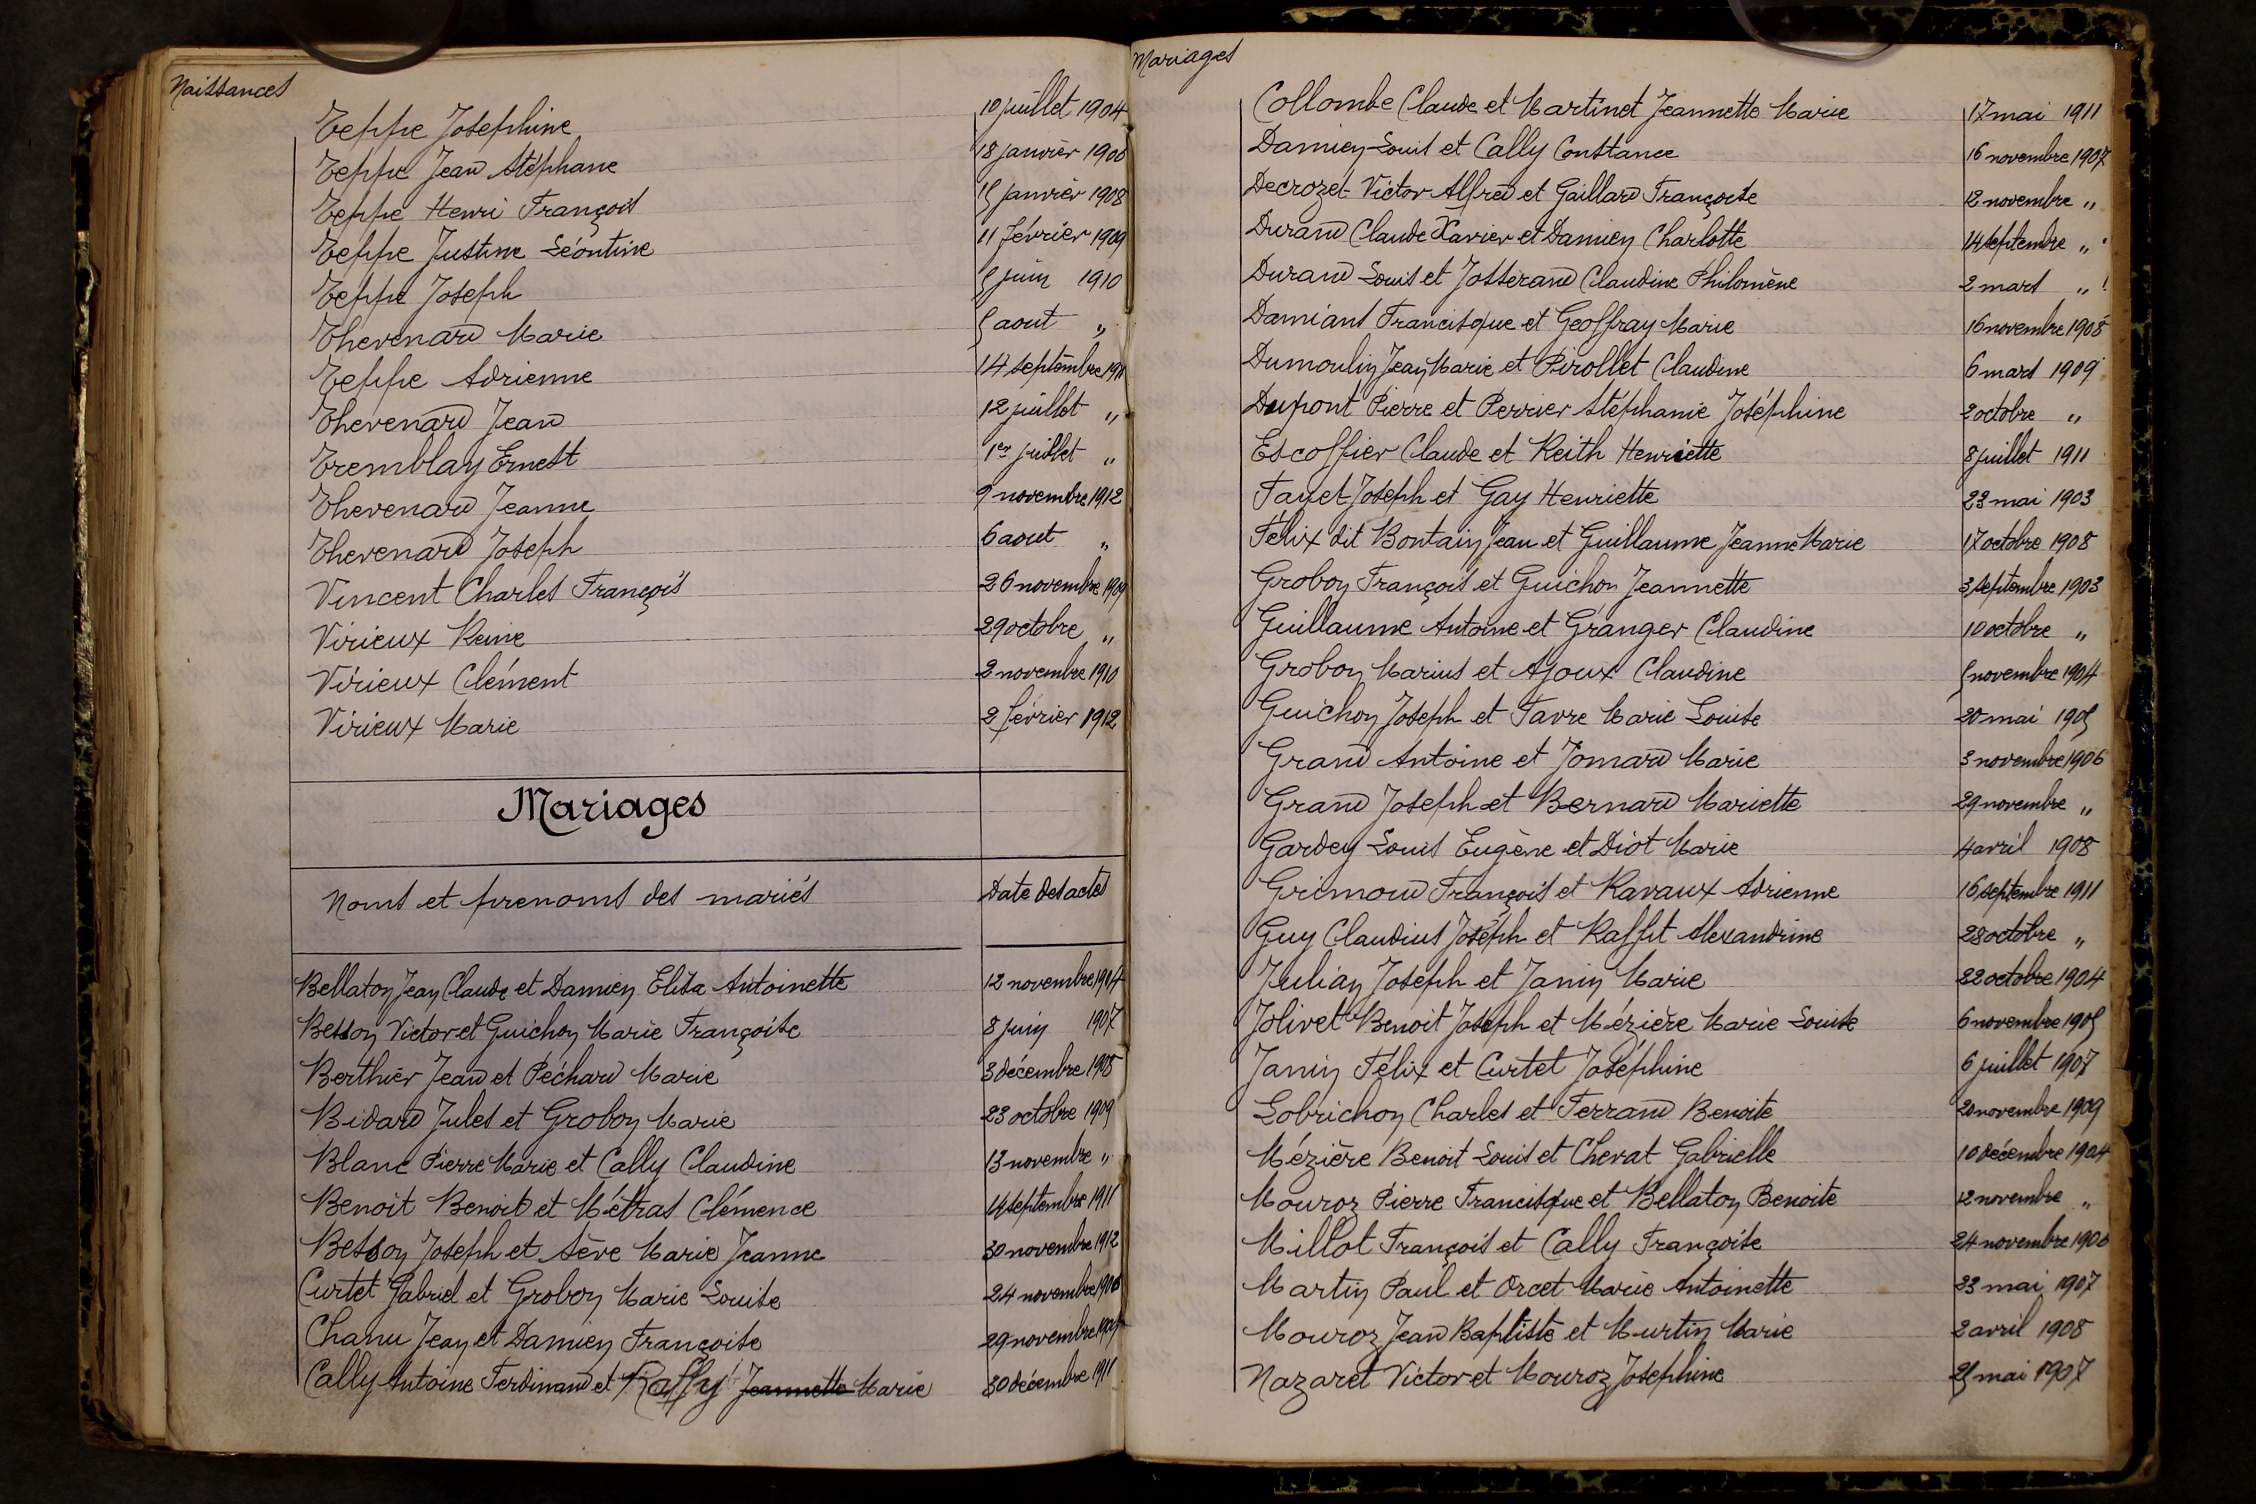 Naissances
Teppe Josephine 10 juillet 1904
Teppe Jean Stéphane 18 janvier 1906
Teppe Henri François 15 janvier 1908
Teppe Justine Léontine 11 février 1909
Teppe Joseph 5 juin 1910
Thevenard Marie 5 aout „
Teppe Adrienne 14 septembre 1911
Thevenard Jean 12 juillet „
Tremblay Ernest 1er juillet „
Thevenard Jeanne 9 novembre 1912
Thevenard Joseph 6 aout „
Vincent Charles François 26 novembre 1909
Virieux Reine 29 octobre „
Virieux Clément 2 novembre 1910
Virieux Marie 2 février 1912
Mariages
Noms et prenoms des mariés Date des actes
Bellaton Jean Claude et Damien Elisa Antoinette 12 novembre 1904
Besson Victor et Guichon Marie Françoise 8 juin 1907
Berthier Jean et Péchard Marie 3 décembre 1908
Bidard Jules et Grobon Marie 23 octobre 1909
Blanc Pierre Marie et Cally Claudine 13 novembre „
Benoit Benoit et Métras Clémence 14 septembre 1911
Besson Joseph et Sève Marie Jeanne 30 novembre 1912
Curtet Gabriel et Grobon Marie Louise 24 novembre 1906
Chanu Jean et Damien Françoise 29 novembre
Cally Antoine Ferdinand et Raffy Jeannette Marie 30 décembre 1911
Mariages
Collombe Claude et Martinet Jeannette Marie 17 mai 1911
Damien Louis et Cally Constance 16 novembre 1907
Decrozet Victor Alfred et Gaillard Françoise 2 novembre „
Durand Claude Xavier et Damien Charlotte 14 septembre „
Durand Louis et Josserand Claudine Philomène 2 mars „
Damians Francisque et Geoffray Marie 16 novembre 1908
Dumoulin Jean Marie et Pirollet Claudine 6 mars 1909
Dupont Pierre et Perrier Stéphanie Joséphine 2 octobre „
Escoffier Claude et Reith Henriette 8 juillet 1911
Fayet Joseph et Gay Henriette 23 mai 1903
Félix dit Bontain Jean et Guillaume Jeanne Marie 17 octobre 1908
Grobon François et Guichon Jeannette 3 septembre 1903
Guillaume Antoine et Granger Claudine 10 octobre „
Grobon Marius et Ajoux Claudine 5 novembre 1904
Guichon Joseph et Favre Marie Louise 20 mai 1905
Grand Antoine et Jomard Marie 3 novembre 1906
Grand Joseph et Bernard Mariette 29 novembre „
Gardey Louis Eugène et Diot Marie 4 avril 1908
Grimoud François et Ravaux Adrienne 16 septembre 1911
Guy Claudius Joseph et Raffit Alexandrine 28 octobre „
Julian Joseph et Janin Marie 22 octobre 1904
Jolivet Benoit Joseph et Mézière Marie Louise 6 novembre 1905
Janin Félix et Curtet Joséphine 6 juillet 1907
Lobrichon Charles et Ferrand Benoite 20 novembre 1909
Mézière Benoit Louis et Chevat Gabrielle 10 décembre 1904
Mouroz Pierre Francisque et Bellaton Benoite 12 novembre „
Millot François et Cally Françoise 24 novembre 1906
Martin Paul et Orcet Marie Antoinette 23 mai 1907
Mouroz Jean Baptiste et Murtin Marie 2 avril 1908
Nazaret Victor et Mouroz Josephine 25 mai 1907